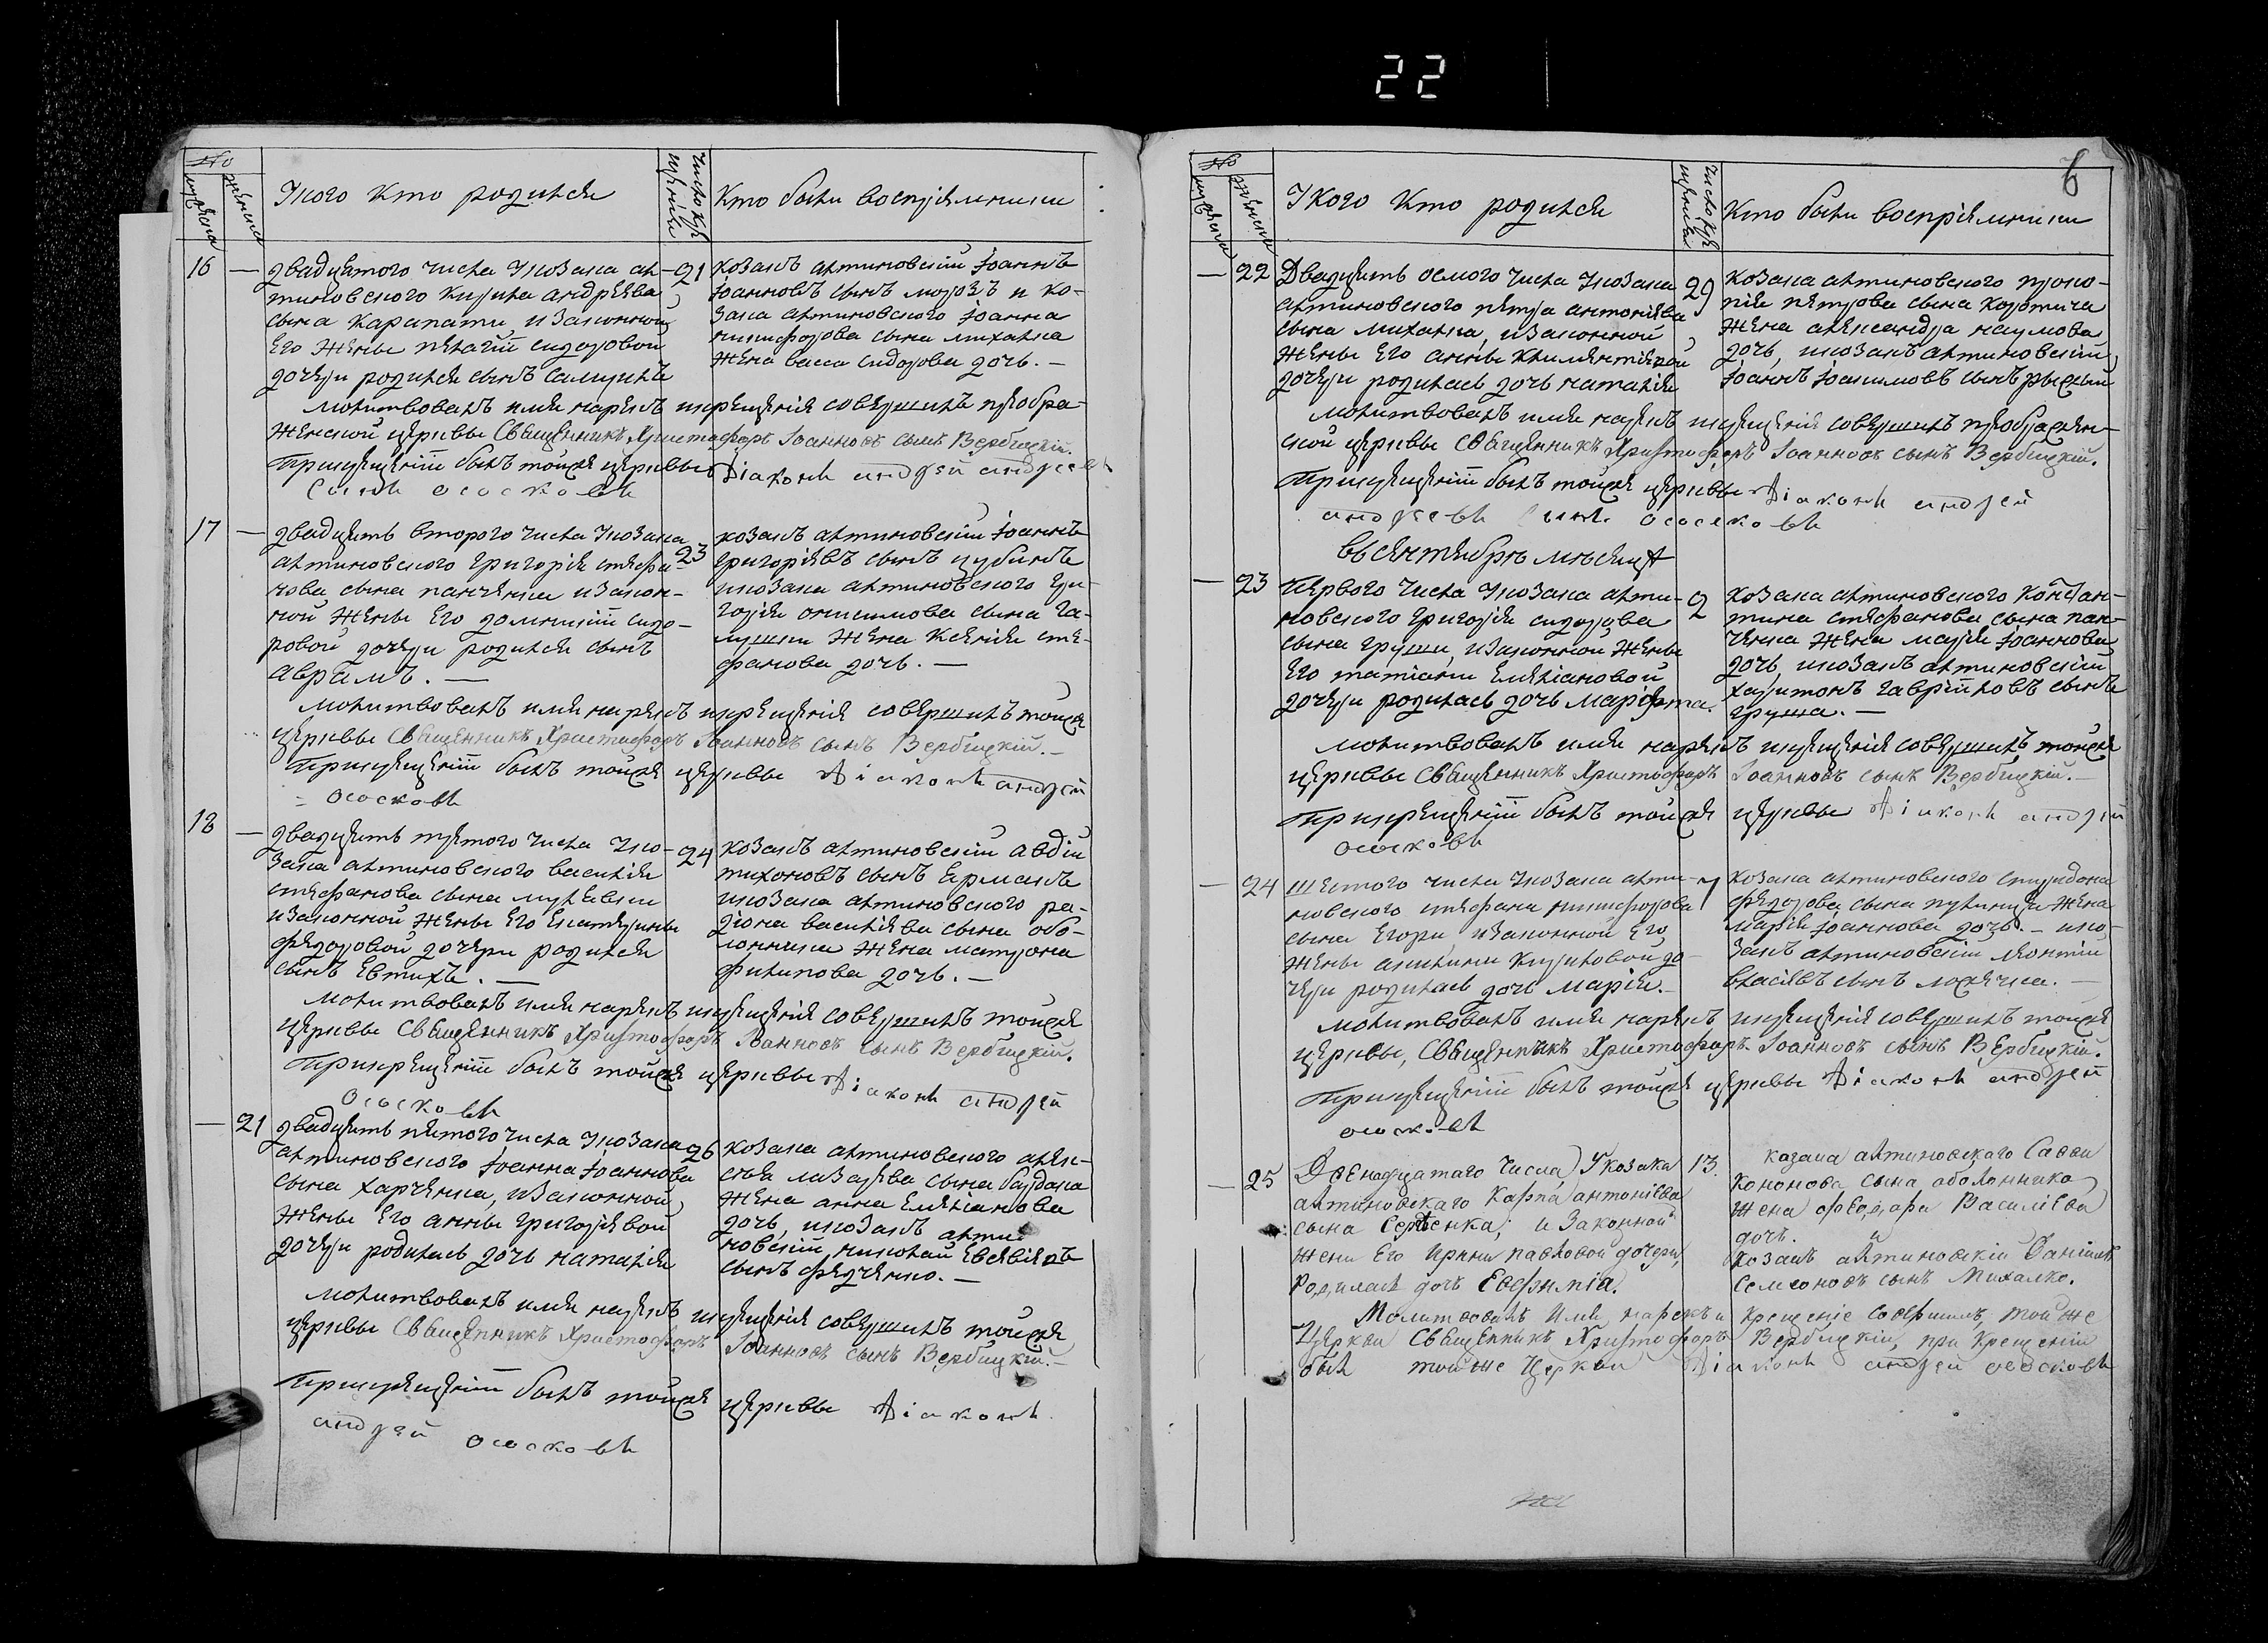 22
№ мужеска женска
Укого кто родился
число крещенія
Кто были воспріемники
16 — двадцятого числа укозака ал- 21
тиновского кирила андреева
сына карапати, изаконной
его жены пелагіи сидоровой
дочери родился сынъ самуилъ
козакъ алтиновскій Іоаннъ
Іоанновъ сынъ морозъ и ко-
зака алтиновского Іоанна
никифорова сына михалка
жена васса сидорова дочь. —
молитвовалъ имя нарекъ икрещенія совершилъ преобра-
женской церквы Священникъ Христофоръ Іоанновъ сынъ Вербицкій.
Прикрещеніи былъ тойже церквы Діаконъ андрей андреевъ
сынъ ососковъ
17 — двадцять второго числа укозака 23
алтиновского григорія стефа-
нова сына панченка изакон-
ной жены его домникіи сидо-
ровой дочери родился сынъ
аврамъ. —
козакъ алтиновскій Іоаннъ
григоріевъ сынъ цубанъ
икозака алтиновского гри-
горія онисимова сына га-
лушки жена ксенія сте-
фанова дочь. —
молитвовалъ имя нарекъ икрещенія совершилъ тойже
церквы Священникъ Христофоръ Іоанновъ сынъ Вербицкій. —
Прикрещеніи былъ тойже церквы Діаконъ андрей
ососковъ
18 — двадцять третого числа уко- 24
зака алтиновского василія
стефанова сына муравки
изаконной жены его екатерины
федоровой дочери родился
сынъ евтихъ. —
козакъ алтиновскій авдій
тихоновъ сынъ ермакъ
икозака алтиновского ра-
діона василіева сына обо-
лонника жена матрона
филипова дочь. —
молитвовалъ имя нарекъ икрещенія совершилъ тойже
церквы Священникъ Христофоръ Іоанновъ сынъ Вербицкій.
Прикрещеніи былъ тойже церквы Діаконъ андрей
ососковъ
— 21 двадцять пятого числа укозака 26
алтиновского Іоанна Іоаннова
сына харченка, изаконной
жены его анны григоріевой
дочери родилась дочь наталія
козака алтиновского алек-
сѣя лазарева сына бардака
жена анна емеліанова
дочь, икозакъ алти-
новскій, николай евсевіевъ
сынъ федченко. —
молитвовалъ имя нарекъ икрещенія совершилъ тойже
церквы Священникъ Христофоръ Іоанновъ сынъ Вербицкій. —
Прикрещеніи былъ тойже церквы Діаконъ
андрей ососковъ
6
№ мужеска женска
Укого кто родился
число крещенія
Кто были воспріемники
— 22 Двадцять осмого числа укозака 29
алтиновского петра антоніева
сына михалка, изаконной
жены его анны климентіевой
дочери родилась дочь наталія
козака алтиновского проко-
пія петрова сына коротича
жена александра наумова
дочь, икозакъ алтиновскій
Іоаннъ Іоакимовъ сынъ рыский
молитвовалъ имя нарекъ икрещенія совершилъ преображен-
ской церквы Священникъ Христофоръ Іоанновъ сынъ Вербицкій.
Прикрещеніи былъ тойже церквы Діаконъ андрей
андреевъ сынъ ососковъ
Всентябрѣ мѣсяцѣ
— 23 Первого числа укозака алти- 2
новского григорія сидорова
сына груши, изаконной жены
его татіаны емеліановой
дочери родилась дочь марфа.
козака алтиновского констан-
тина стефанова сына пан-
ченка жена марія Іоаннова
дочь, икозакъ алтиновскій
харитонъ гавріиловъ сынъ
груша. —
молитвовалъ имя нарекъ икрещенія совершилъ тойже
церквы Священникъ Христофоръ Іоанновъ сынъ Вербицкій. —
Прикрещеніи былъ тойже церквы Діаконъ андрей
ососковъ
— 24 шестого числа укозака алти- 7
новского стефана никифорова
сына егоры, изаконной его
жены акилины кириловой до-
чери родилась дочь марія. —
козака алтиновского спиридона
федорова сына жена
марія Іоаннова дочь. — ико-
закъ алтиновскій леонтій
власіевъ сынъ —
молитвовалъ имя нарекъ, икрещенія совершилъ тойже
церквы, Священникъ Христофоръ Іоанновъ сынъ Вербицкій.
Прикрещеніи былъ тойже церквы Діаконъ андрей
ососковъ
— 25 Двенадцатаго числа, Укозака 13.
алтиновскаго Карпа антоніева
сына Сердѣенка; и Законной
жены Его Ирины павловой дочери,
Родилась дочь Евфимія.
казака алтиновскаго Саввы
Кононова сына оболонника
жена феодора Василіева
дочь. и
Козакъ алтиновскій Даніилъ
Семеоновъ сынъ Михалко.
Молитвовалъ Имя нарекъ и крещеніе совершилъ, той же
Церкви Священникъ Христофоръ Вербицкій, при крещеніи
былъ той же Церкви Діаконъ андрей ососковъ